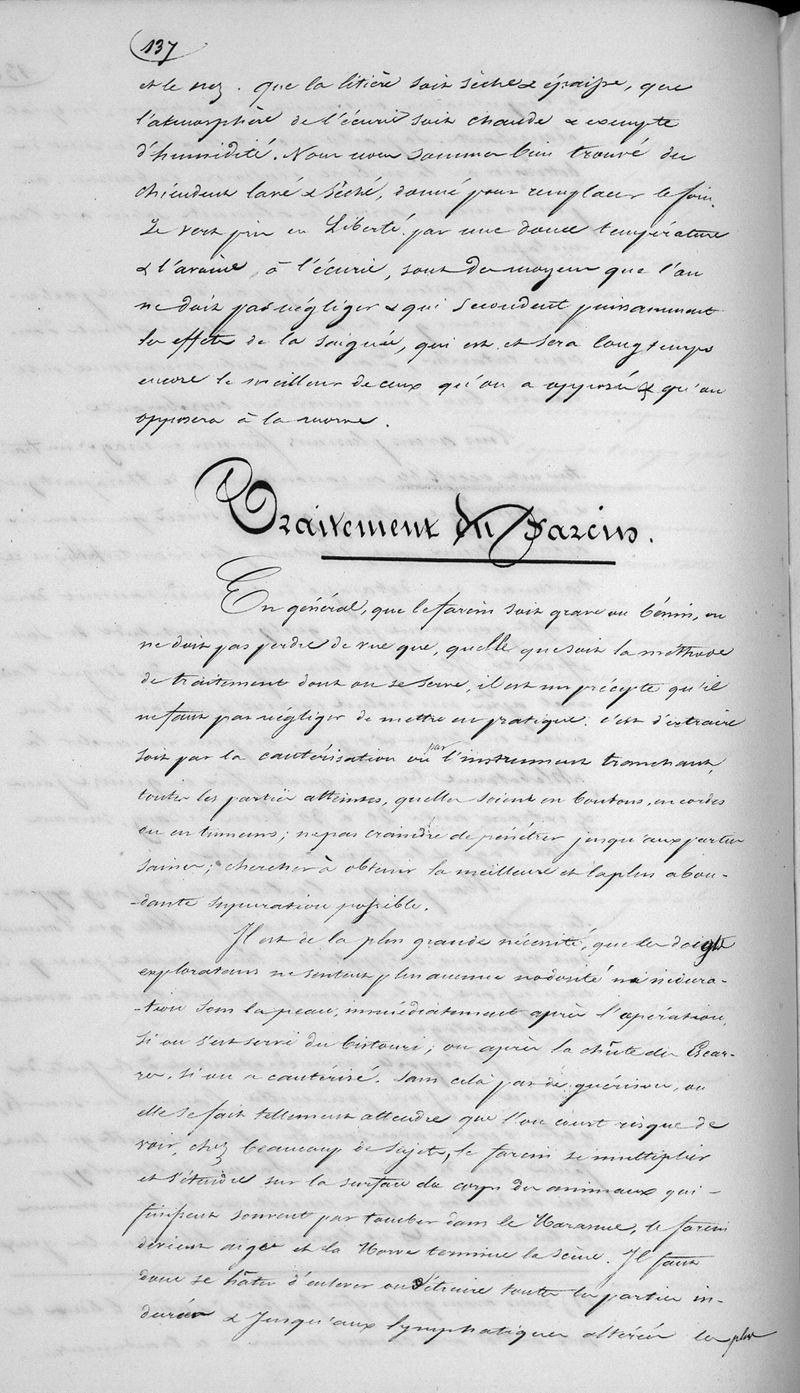 137
et le nez. que la litière soit sèche & épaisse, que
l'atmosphère de l'écurie soit chaude & exempte
d'humidité. Nous nous sommes bien trouvé du
chiendent lavé & séché, donné pour remplacer le foin.
Le vert pris en Liberté par une douce température
& l'avoine, à l'écurie, sont des moyens que l'on
ne doit pas négliger & qui secondent puissamment
les effets de la saignée, qui est et sera longtemps
encore le meilleur de ceux qu'on a opposés & qu'on
opposera à la morve.
Traitement du Farcin.
En général, que le farcin soit grave ou bénin, on
ne doit pas perdre de vue que, quelle que soit la méthode
de traitement dont on se serve, il est un précepte qu'il
ne faut pas négliger de mettre en pratique: c'est d'extraire
soit par la cautérisation ou par l'instrument tranchant,
toutes les parties atteintes, quelles soient en boutons, en cordes
ou en tumeurs; ne pas craindre de pénétrer jusqu'aux parties
saines; chercher à obtenir la meilleure et la plus abon-
-dante supuration possible.
Il est de la plus grande nécessité, que les doigts
explorateurs ne sentent plus aucune nodosité ni indura-
-tion sous la peau, immédiatement après l'opération,
si on s'est servi du bistouri; ou après la chûte des Escar-
res, si on a cautérisé. Sans celà pas de guérison, ou
elle se fait tellement attendre que l'on court risque de
voir, chez beaucoup de sujets, le farcin se multiplier
et s'étendre sur la surface du corps des animaux qui
finissent souvent par tomber dans le Marasme, le farcin
devient aigu et la Morve termine la scène. Il faut
donc se hâter d'enlever ou détruire toutes les parties in-
durées & jusqu'aux lymphatiques altérés les plus